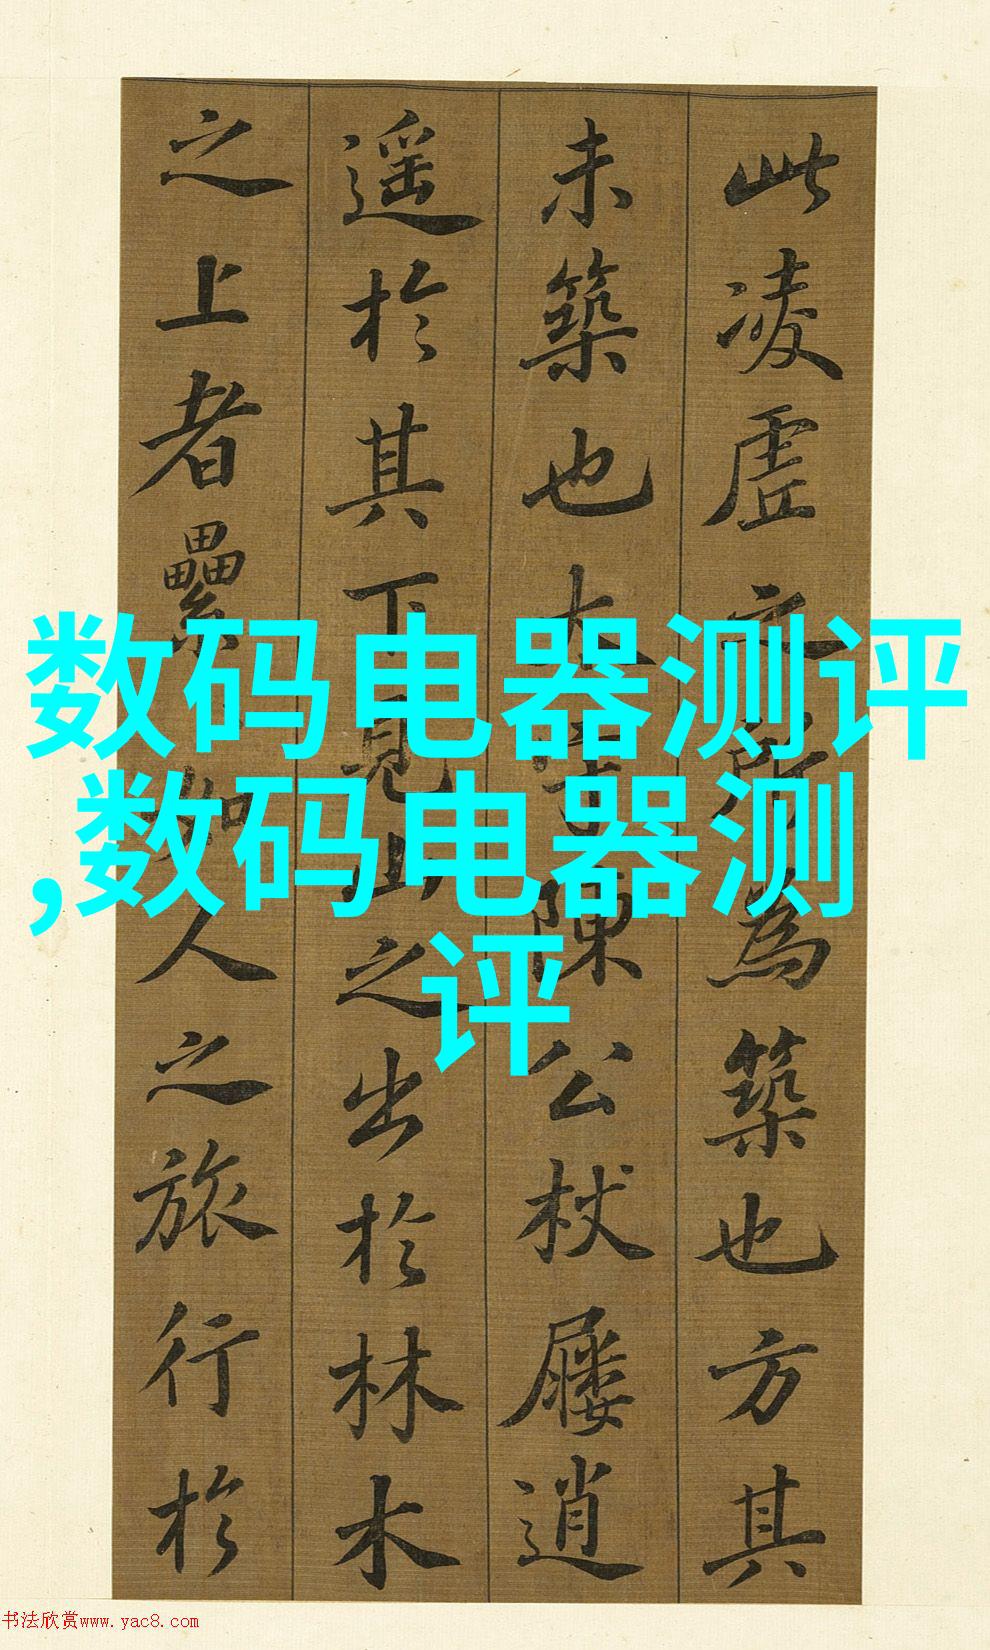 此凌虛之所為築也方其
未築也太守陳公杖屨逍
遥於其下見山之出於林木
之上者纍如人之旅行於
数码电器测评
,数码电器测
评
书法欣赏www.yac8.com